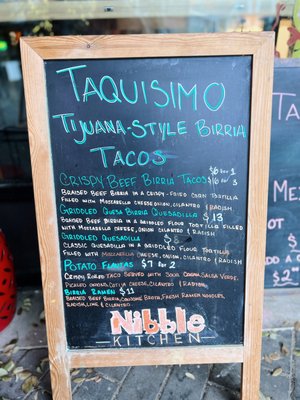 Taquisimo
Tijuana-Style Birria
Tacos
Crispy Beef Birria Tacos $6 for 1
$16 for 3
Braised Beef Birria in a crispy-fried corn tortilla
filled with Mozzarella cheese, onion, cilantro & radish.
Griddled Quesa Birria Quesadilla $13
Braised Beef Birria in a griddled flour tortilla filled
with Mozzarella cheese, onion, cilantro & radish
Griddled Quesadilla $8
Classic Quesadilla in a griddled flour tortilla
filled with Mozzarella cheese, onion, cilantro & radish
Potato Flautas $7 for 2
Crispy rolled taco served with Sour Crema, Salsa Verde,
Pickled onions, Cotija cheese, cilantro & radish
Birria Ramen $11
Braised Beef Birria, Consome Broth, Fresh Ramen Noodles,
Radish, Lime & Cilantro.
Nibble
KITCHEN
TA
ME